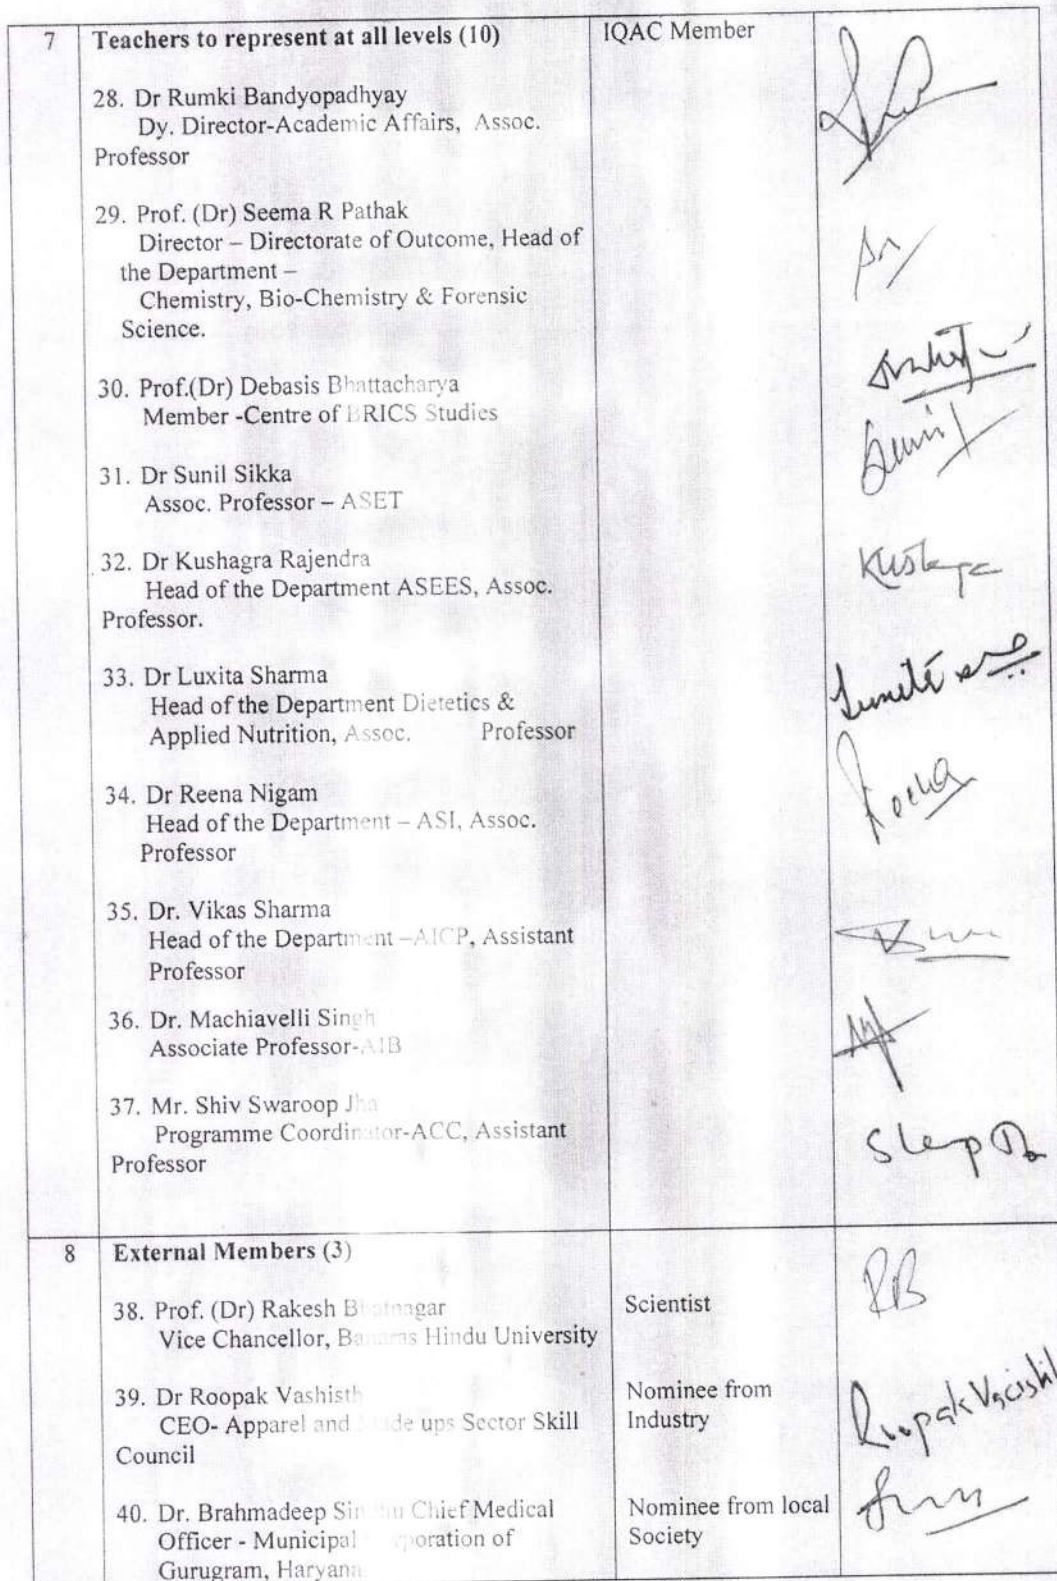 7 Teachers to represent at all levels (10) IQAC Member
28. Dr Rumki Bandyopadhyay
Dy. Director-Academic Affairs, Assoc.
Professor
29. Prof. (Dr) Seema R Pathak
Director – Directorate of Outcome, Head of
the Department –
Chemistry, Bio-Chemistry & Forensic
Science.
30. Prof.(Dr) Debasis Bhattacharya
Member -Centre of BRICS Studies
31. Dr Sunil Sikka
Assoc. Professor – ASET
32. Dr Kushagra Rajendra
Head of the Department ASEES, Assoc.
Professor.
33. Dr Luxita Sharma
Head of the Department Dietetics &
Applied Nutrition, Assoc. Professor
34. Dr Reena Nigam
Head of the Department – ASI, Assoc.
Professor
35. Dr. Vikas Sharma
Head of the Department –AICP, Assistant
Professor
36. Dr. Machiavelli Singh
Associate Professor-AIB
37. Mr. Shiv Swaroop Jha
Programme Coordinator-ACC, Assistant
Professor
8 External Members (3)
38. Prof. (Dr) Rakesh Bhatnagar Scientist RB
Vice Chancellor, Banaras Hindu University
39. Dr Roopak Vashisth Nominee from
CEO- Apparel and Made ups Sector Skill Industry
Council
40. Dr. Brahmadeep Chief Medical Nominee from local
Officer - Municipal Corporation of Society
Gurugram, Haryana